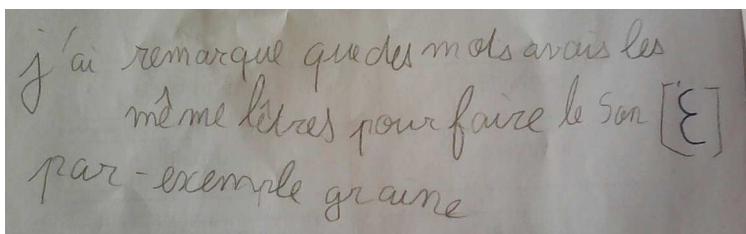 j'ai remarque que des mots avais les
même lêtres pour faire le son [ɛ]
par-exemple graine